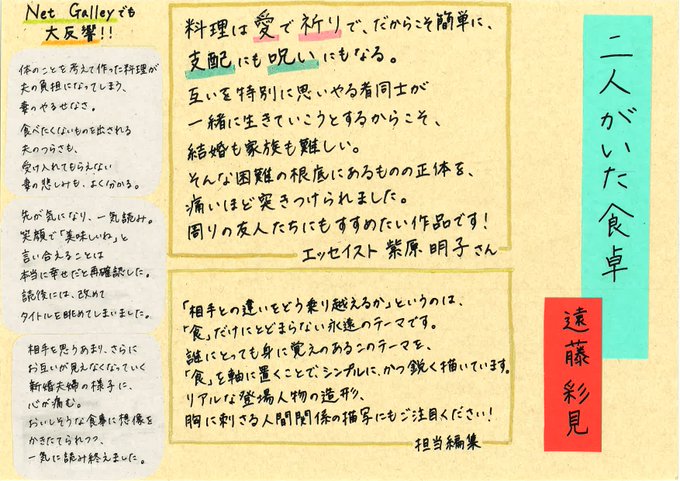 二人がいた食卓
遠藤彩見
料理は愛で祈りで、だからこそ簡単に、
支配にも呪いにもなる。
互いを特別に思いやる者同士が
一緒に生きていこうとするからこそ、
結婚も家族も難しい。
そんな困難の根底にあるものの正体を、
痛いほど突きつけられました。
周りの友人たちにもすすめたい作品です!
エッセイスト 紫原明子さん
「相手との違いをどう乗り越えるか」というのは、
「食」だけにとどまらない永遠のテーマです。
誰にとっても身に覚えのあるこのテーマを、
「食」を軸に置くことで、シンプルに、かつ鋭く描いています。
リアルな登場人物の造形、
胸に刺さる人間関係の描写にもご注目ください!
担当編集
Net Galleyでも
大反響!!
体のことを考えて作った料理が
夫の負担になってしまう、
妻のやるせなさ。
食べたくないものを出される
夫のつらさも、
受け入れてもらえない
妻の悲しみも、よく分かる。
先が気になり、一気読み。
笑顔で「美味しいね」と
言い合えることは
本当に幸せだと再確認した。
読後には、改めて
タイトルを眺めてしまいました。
相手を思うあまり、さらに
お互いが見えなくなっていく
新婚夫婦の様子に、
心が痛む。
おいしそうな食事に想像を
かきたてられつつ、
一気に読み終えました。